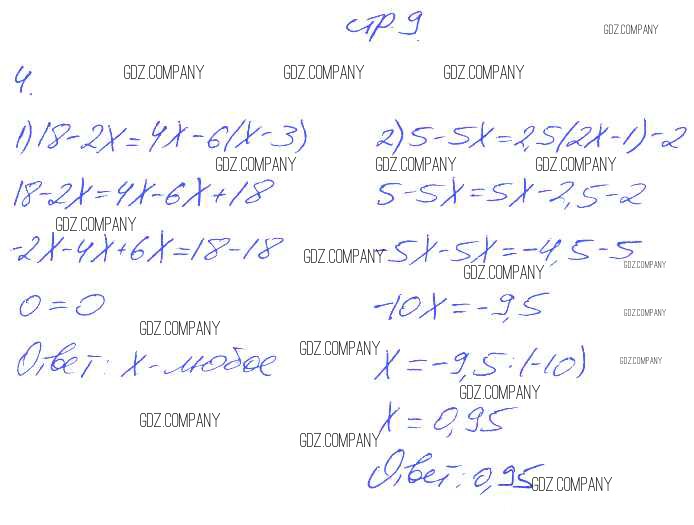 стр. 9.
GDZ.COMPANY
4.
GDZ.COMPANY GDZ.COMPANY GDZ.COMPANY
1) 18-2x=4x-6(x-3)
GDZ.COMPANY
18-2x=4x-6x+18
GDZ.COMPANY
-2x-4x+6x=18-18
0=0
GDZ.COMPANY
Ответ: x-любое
GDZ.COMPANY
2) 5-5x=2,5(2x-1)-2
GDZ.COMPANY GDZ.COMPANY
5-5x=5x-2,5-2
GDZ.COMPANY
-5x-5x=-4,5-5
GDZ.COMPANY GDZ.COMPANY
-10x=-9,5
GDZ.COMPANY
GDZ.COMPANY
x=-9,5:(-10)
GDZ.COMPANY
GDZ.COMPANY
x=0,95
GDZ.COMPANY
Ответ: 0,95
GDZ.COMPANY